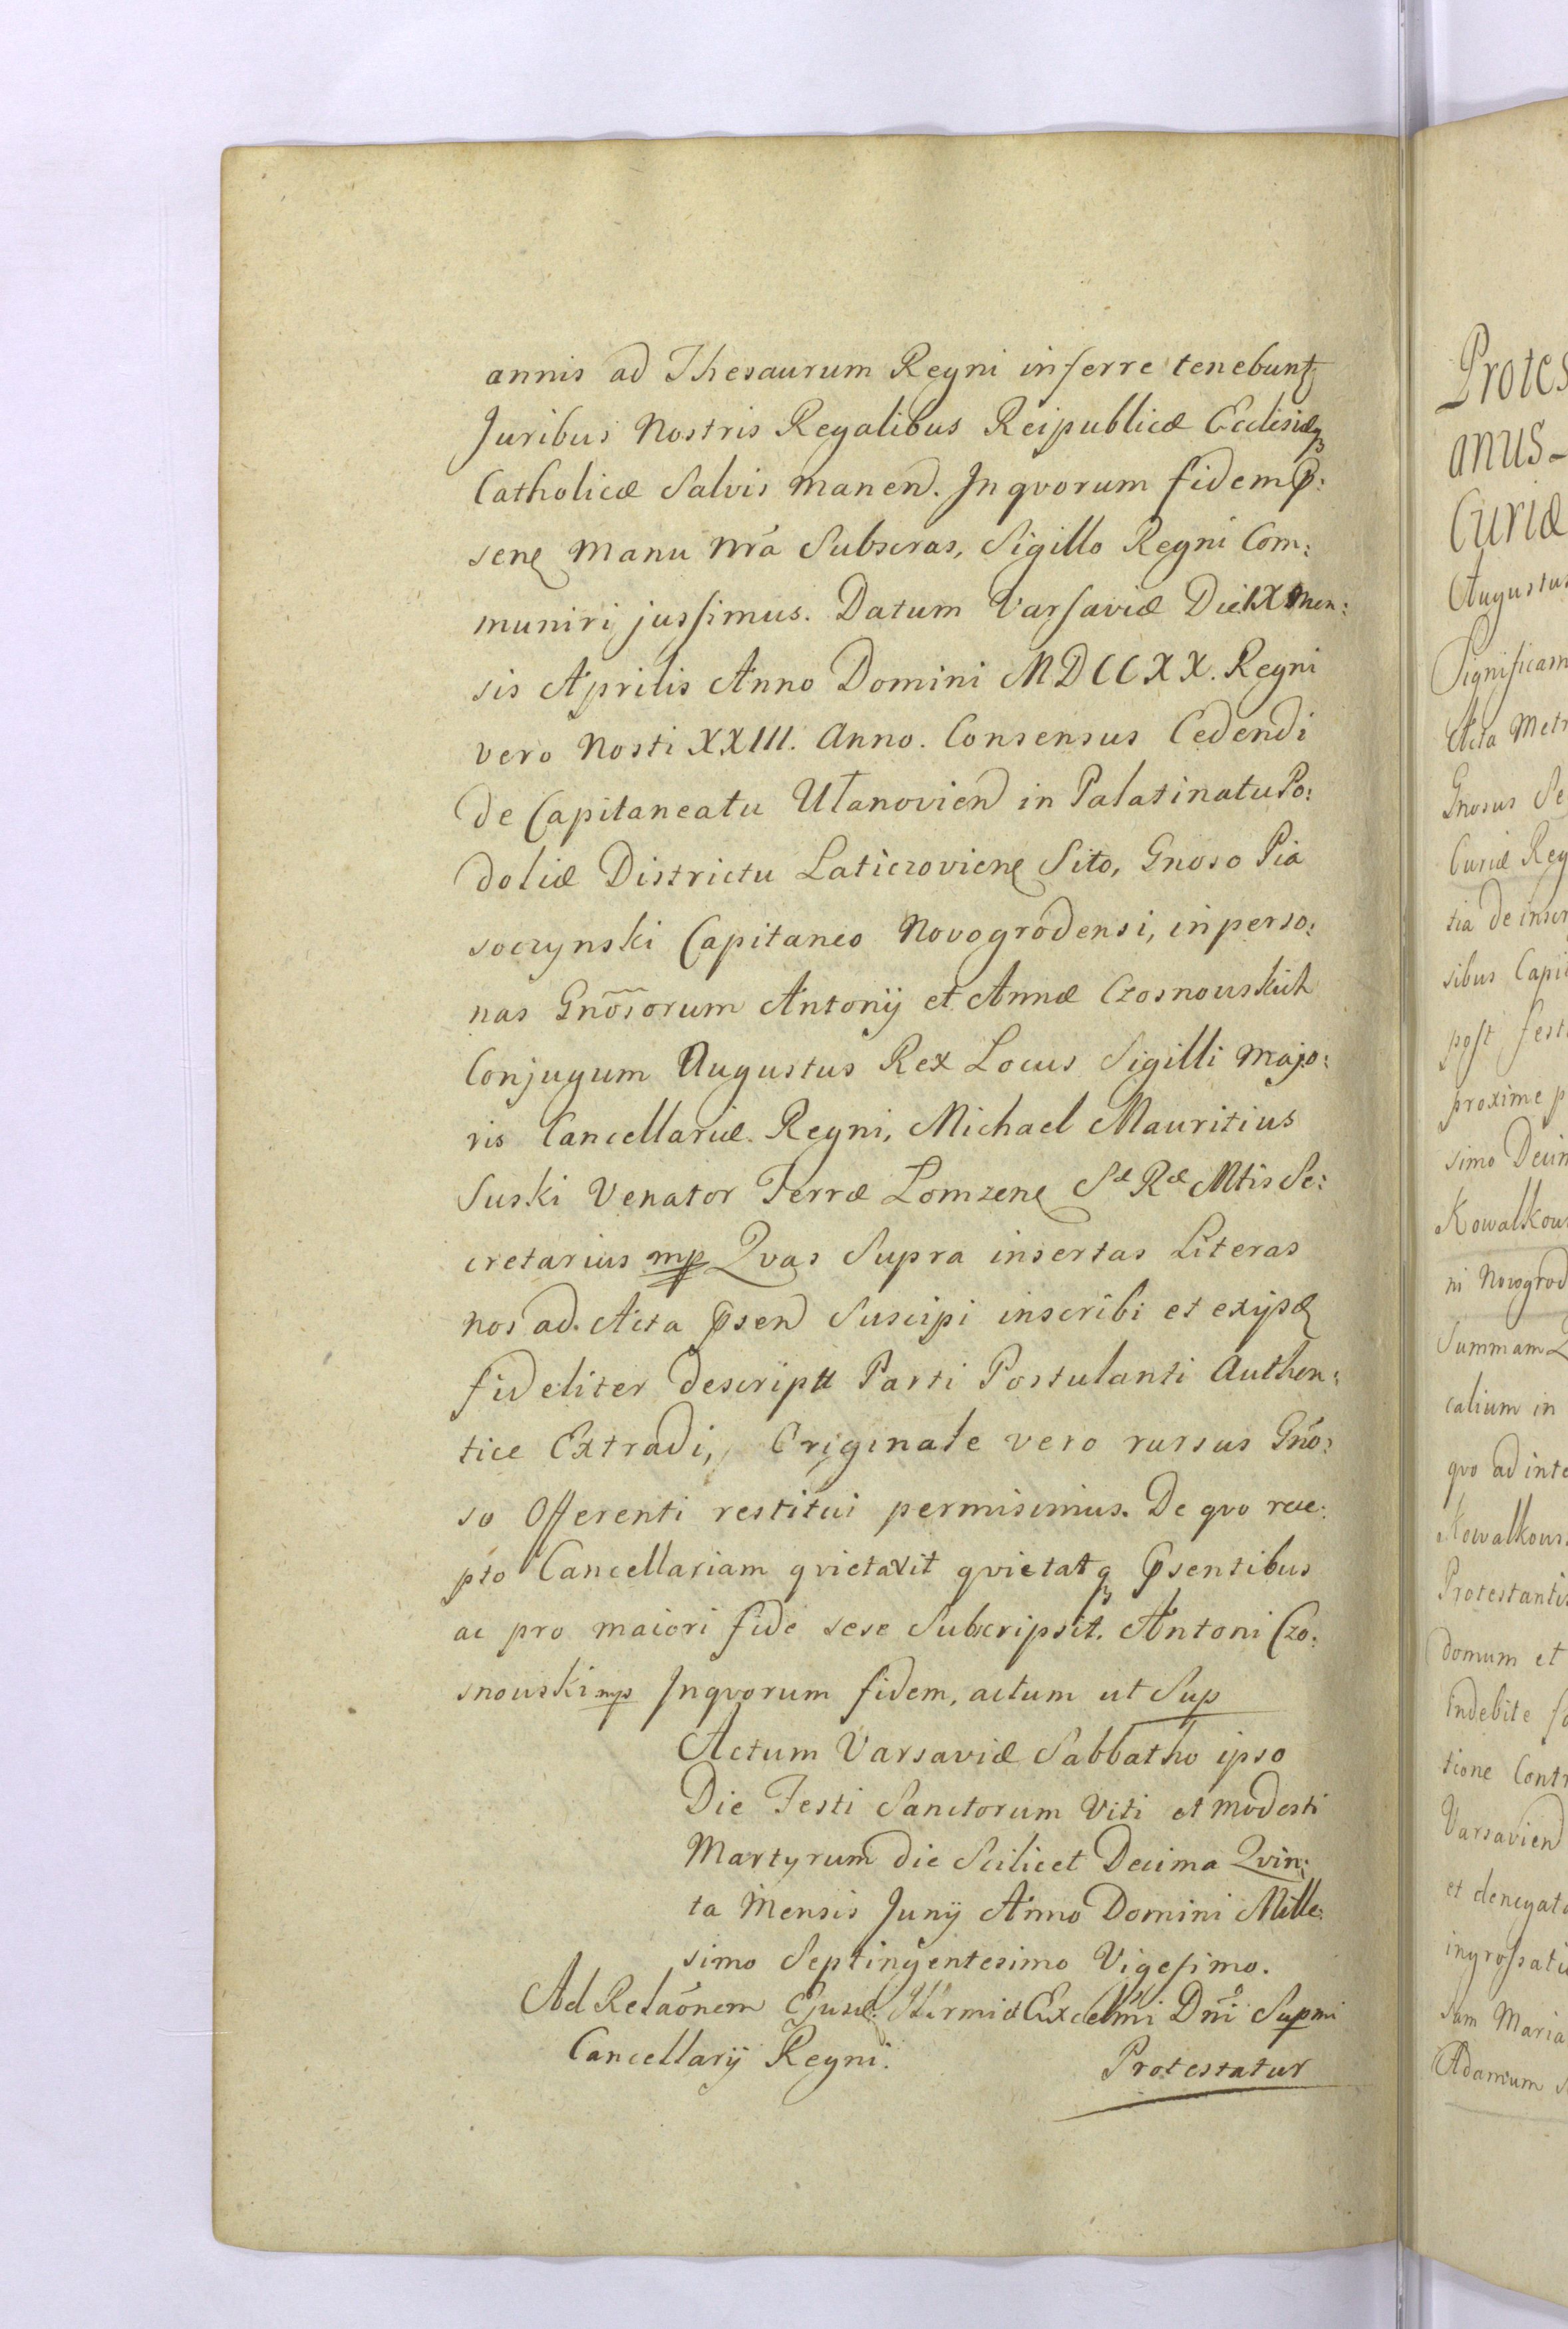 annis ad Thesaurum Regni inferre tenebunt
Juribus Nostris Regalibus Reipublicæ Ecclesiæq3
Catholicæ Salvis manend. In qvorum fidem P:
sene manu nrã Subscras, Sigillo Regni Com:
muniri jussimus. Datum Varsaviæ Die IX Men:
sis Aprilis Anno Domini MDCCXX. Regni
vero Nosti XXIII. Anno. Consensus Cedendi
de Capitaneatu Ułanoviend in Palatinatu Po:
doliæ Districtu Laticzoviene Sito, Gnoso Pia
soczynski Capitaneo Novogrodensi, in perso:
nas Gnõsorum Antonij et Annæ Czosnowskich
Conjugum Augustus Rex Locus Sigilli Majo:
ris Cancellariæ Regni, Michael Mauritius
Suski Venator Terræ Lomzene Sæ Ræ Mtis Se:
cretarius mp Qvas Supra insertas Literas
nos ad Acta psend Suscipi inscribi et exijsd
fideliter descriptt Parti Postulanti Authen:
tice Extradi, Originale vero rursus Gño:
so Offerenti restitui permisimus. De qvo rece:
pto Cancellariam qvietavit qvietatq3 Psentibus
ac pro maiori fide sese Subscripsit. Antoni Czo:
snowski mp In qvorum fidem, actum ut Sup
Actum Varsaviæ Sabbatho ipso
Die Festi Sanctorum Viti et Modesti
Martyrum die Scilicet Decima Qvin:
ta Mensis Junij Anno Domini Mille:
simo Septingentesimo Vigesimo.
Ad Relaõnem Ejusd: Illrmi et Excellmi Dñi Supmi
Cancellarij Regni.
Protestatur
Protes
anus-
Curiæ
Augustus
Significam
Acta Metr
Gnosus Se
Curiæ Reg
tia de inser
sibus Capit
post fest
proxime p
simo Decim
Kowalkow
ni Novogrod
Summam
calium in
qvo ad inte
Kowalkows
Protestantis
domum et
indebite
tione Contr
Varsaviend
et denegat
ingrossati
sam Maria
Adamum